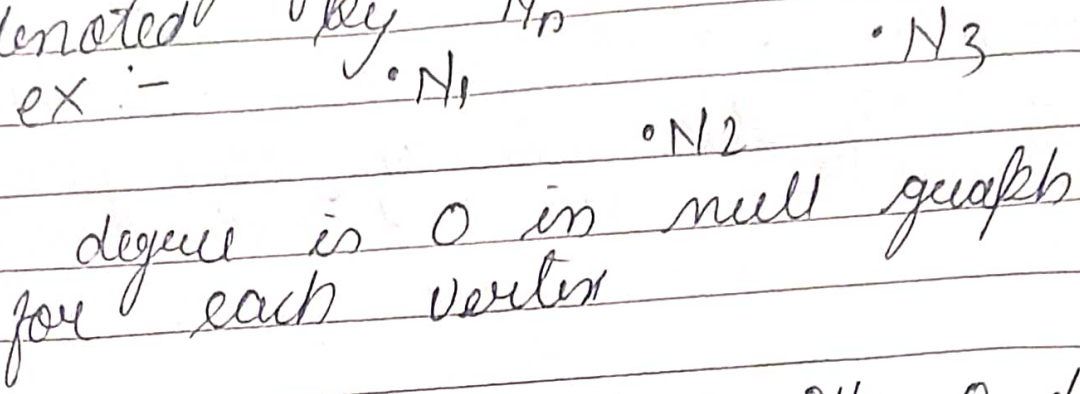 denoted by Nn
ex :- •N1 •N3
•N2
degree is 0 in null graph
for each vertex